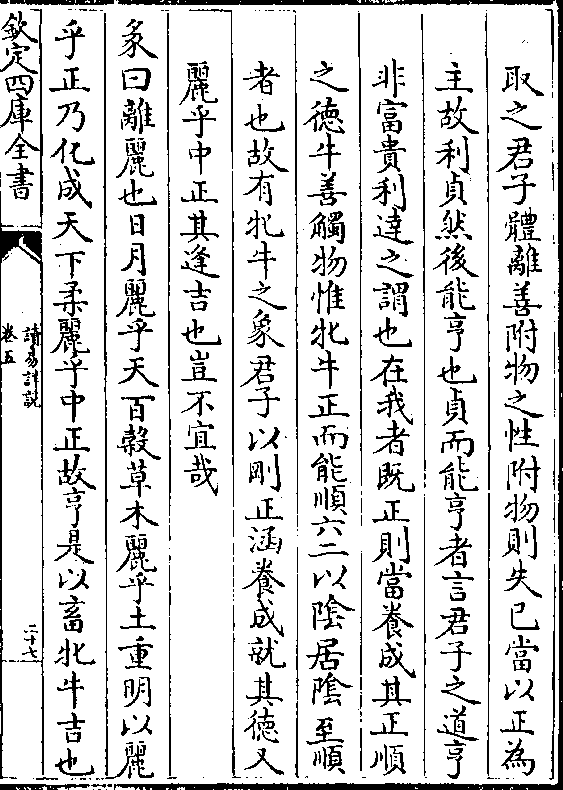 取之君子體離善附物之性附物則失已當以正為
主故利貞然後能亨也貞而能亨者言君子之道亨
非富貴利達之謂也在我者既正則當養成其正順
之德牛善觸物惟牝牛正而能順六二以陰居陰至順
者也故有牝牛之象君子以剛正涵養成就其德又
麗乎中正其逢吉也豈不宜哉
彖曰離麗也日月麗乎天百穀草木麗乎土重明以麗
乎正乃化成天下柔麗乎中正故亨是以畜牝牛吉也
欽定四庫全書
讀易詳說
卷五
二十七